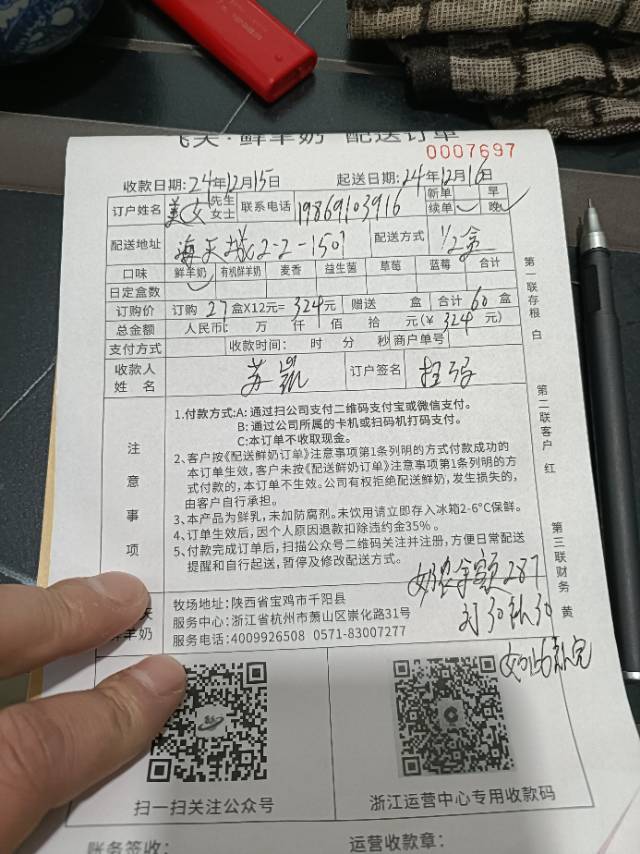 飞天·鲜羊奶 配送订单
0007697
收款日期:24年12月15日 起送日期:24年12月16日
订户姓名 美女 先生 女士 联系电话 19869103916 新单 续单 早 晚
配送地址 海天城2-2-1501 配送方式 1/2盒
口味 鲜羊奶 有机鲜羊奶 麦香 益生菌 草莓 蓝莓 合计
日定盒数
订购价 订购 27 盒X12元= 324元 赠送 盒 合计 60 盒
总金额 人民币: 万 仟 佰 拾 元(¥ 324 元)
支付方式 收款时间: 时 分 秒 商户单号
收款人 姓名 苏凯 订户签名
注意事项
1.付款方式:A: 通过扫公司支付二维码支付宝或微信支付。
B: 通过公司所属的卡机或扫码机打码支付。
C:本订单不收取现金。
2、客户按《配送鲜奶订单》注意事项第1条列明的方式付款成功的
本订单生效,客户未按《配送鲜奶订单》注意事项第1条列明的方
式付款的,本订单不生效。公司有权拒绝配送鲜奶,发生损失的,
由客户自行承担。
3、本产品为鲜乳,未加防腐剂。未饮用请立即存入冰箱2-6°C保鲜。
4、订单生效后,因个人原因退款扣除违约金35%。
5、付款完成订单后,扫描公众号二维码关注并注册,方便日常配送
提醒和自行起送,暂停及修改配送方式。
第一联存根 白
第二联客户 红
第三联财务 黄
287
天
鲜羊奶
牧场地址:陕西省宝鸡市千阳县
服务中心:浙江省杭州市萧山区崇化路31号
服务电话:4009926508 0571-83007277
扫一扫关注公众号
浙江运营中心专用收款码
账务签收: 运营收款章: